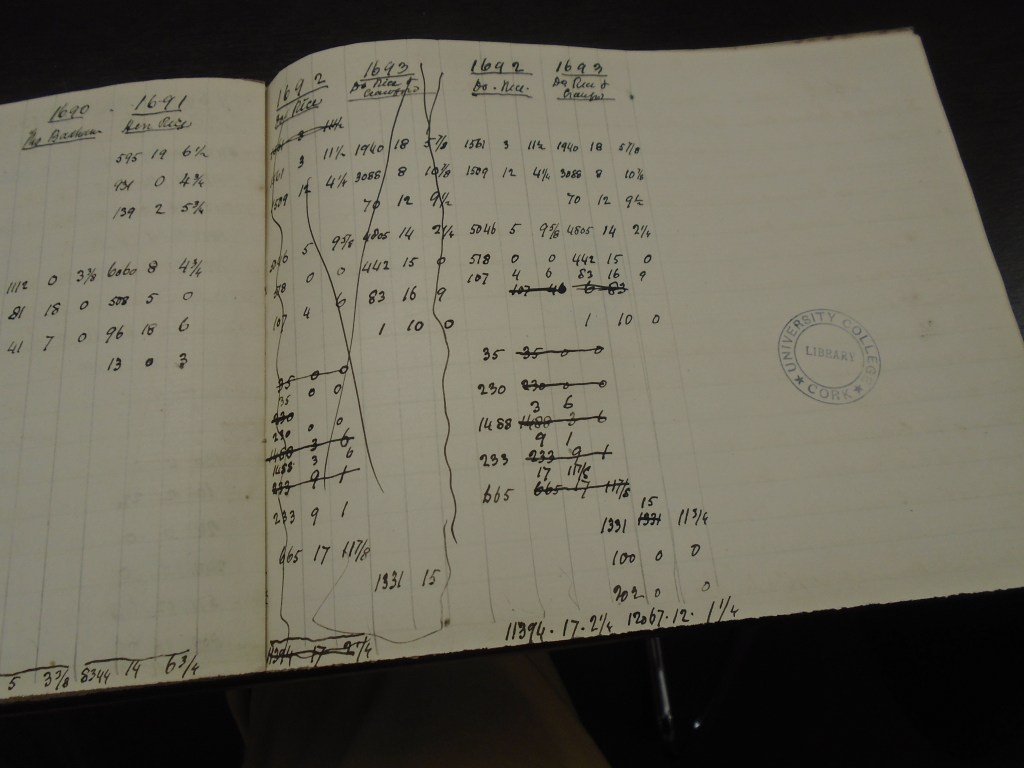 1690 1691
595 19 6½
931 0 4¾
139 2 5¾
1112 0 3⅜ 6060 8 4¾
81 18 0 508 5 0
41 7 0 96 18 6
13 0 3
5 3⅜ 8344 14 6¾
1692 1693
Rice Do Rice &
3 11½ 1940 18 5⅞
4¼ 3088 8 10⅞
70 12 9½
5 9⅝ 4805 14 2¼
0 0 442 15 0
107 4 6 83 16 9
1 10 0
35 0 0
35 0 0
230
230 0 0
1488 3 6
1488 3 6
233 9 1
233 9 1
665 17 11⅞
1331 15
11394 17 2¼
1692 1693
Do. Rice. Do Rice &
1561 3 11½ 1940 18 5⅞
1509 12 4¼ 3088 8 10⅞
70 12 9½
5046 5 9⅝ 4805 14 2¼
518 0 0 442 15 0
107 4 6 83 16 9
107 46 6 83
1 10 0
35 35 0 0
230 230 0 0
3 6
1488 1488 3 6
9 1
233 233 9 1
17 11⅞
665 665 17 11⅞
15
1331 1331 11¾
100 0 0
202 0 0
11394. 17. 2¼ 12067. 12. 1¼
UNIVERSITY COLLEGE
LIBRARY
CORK